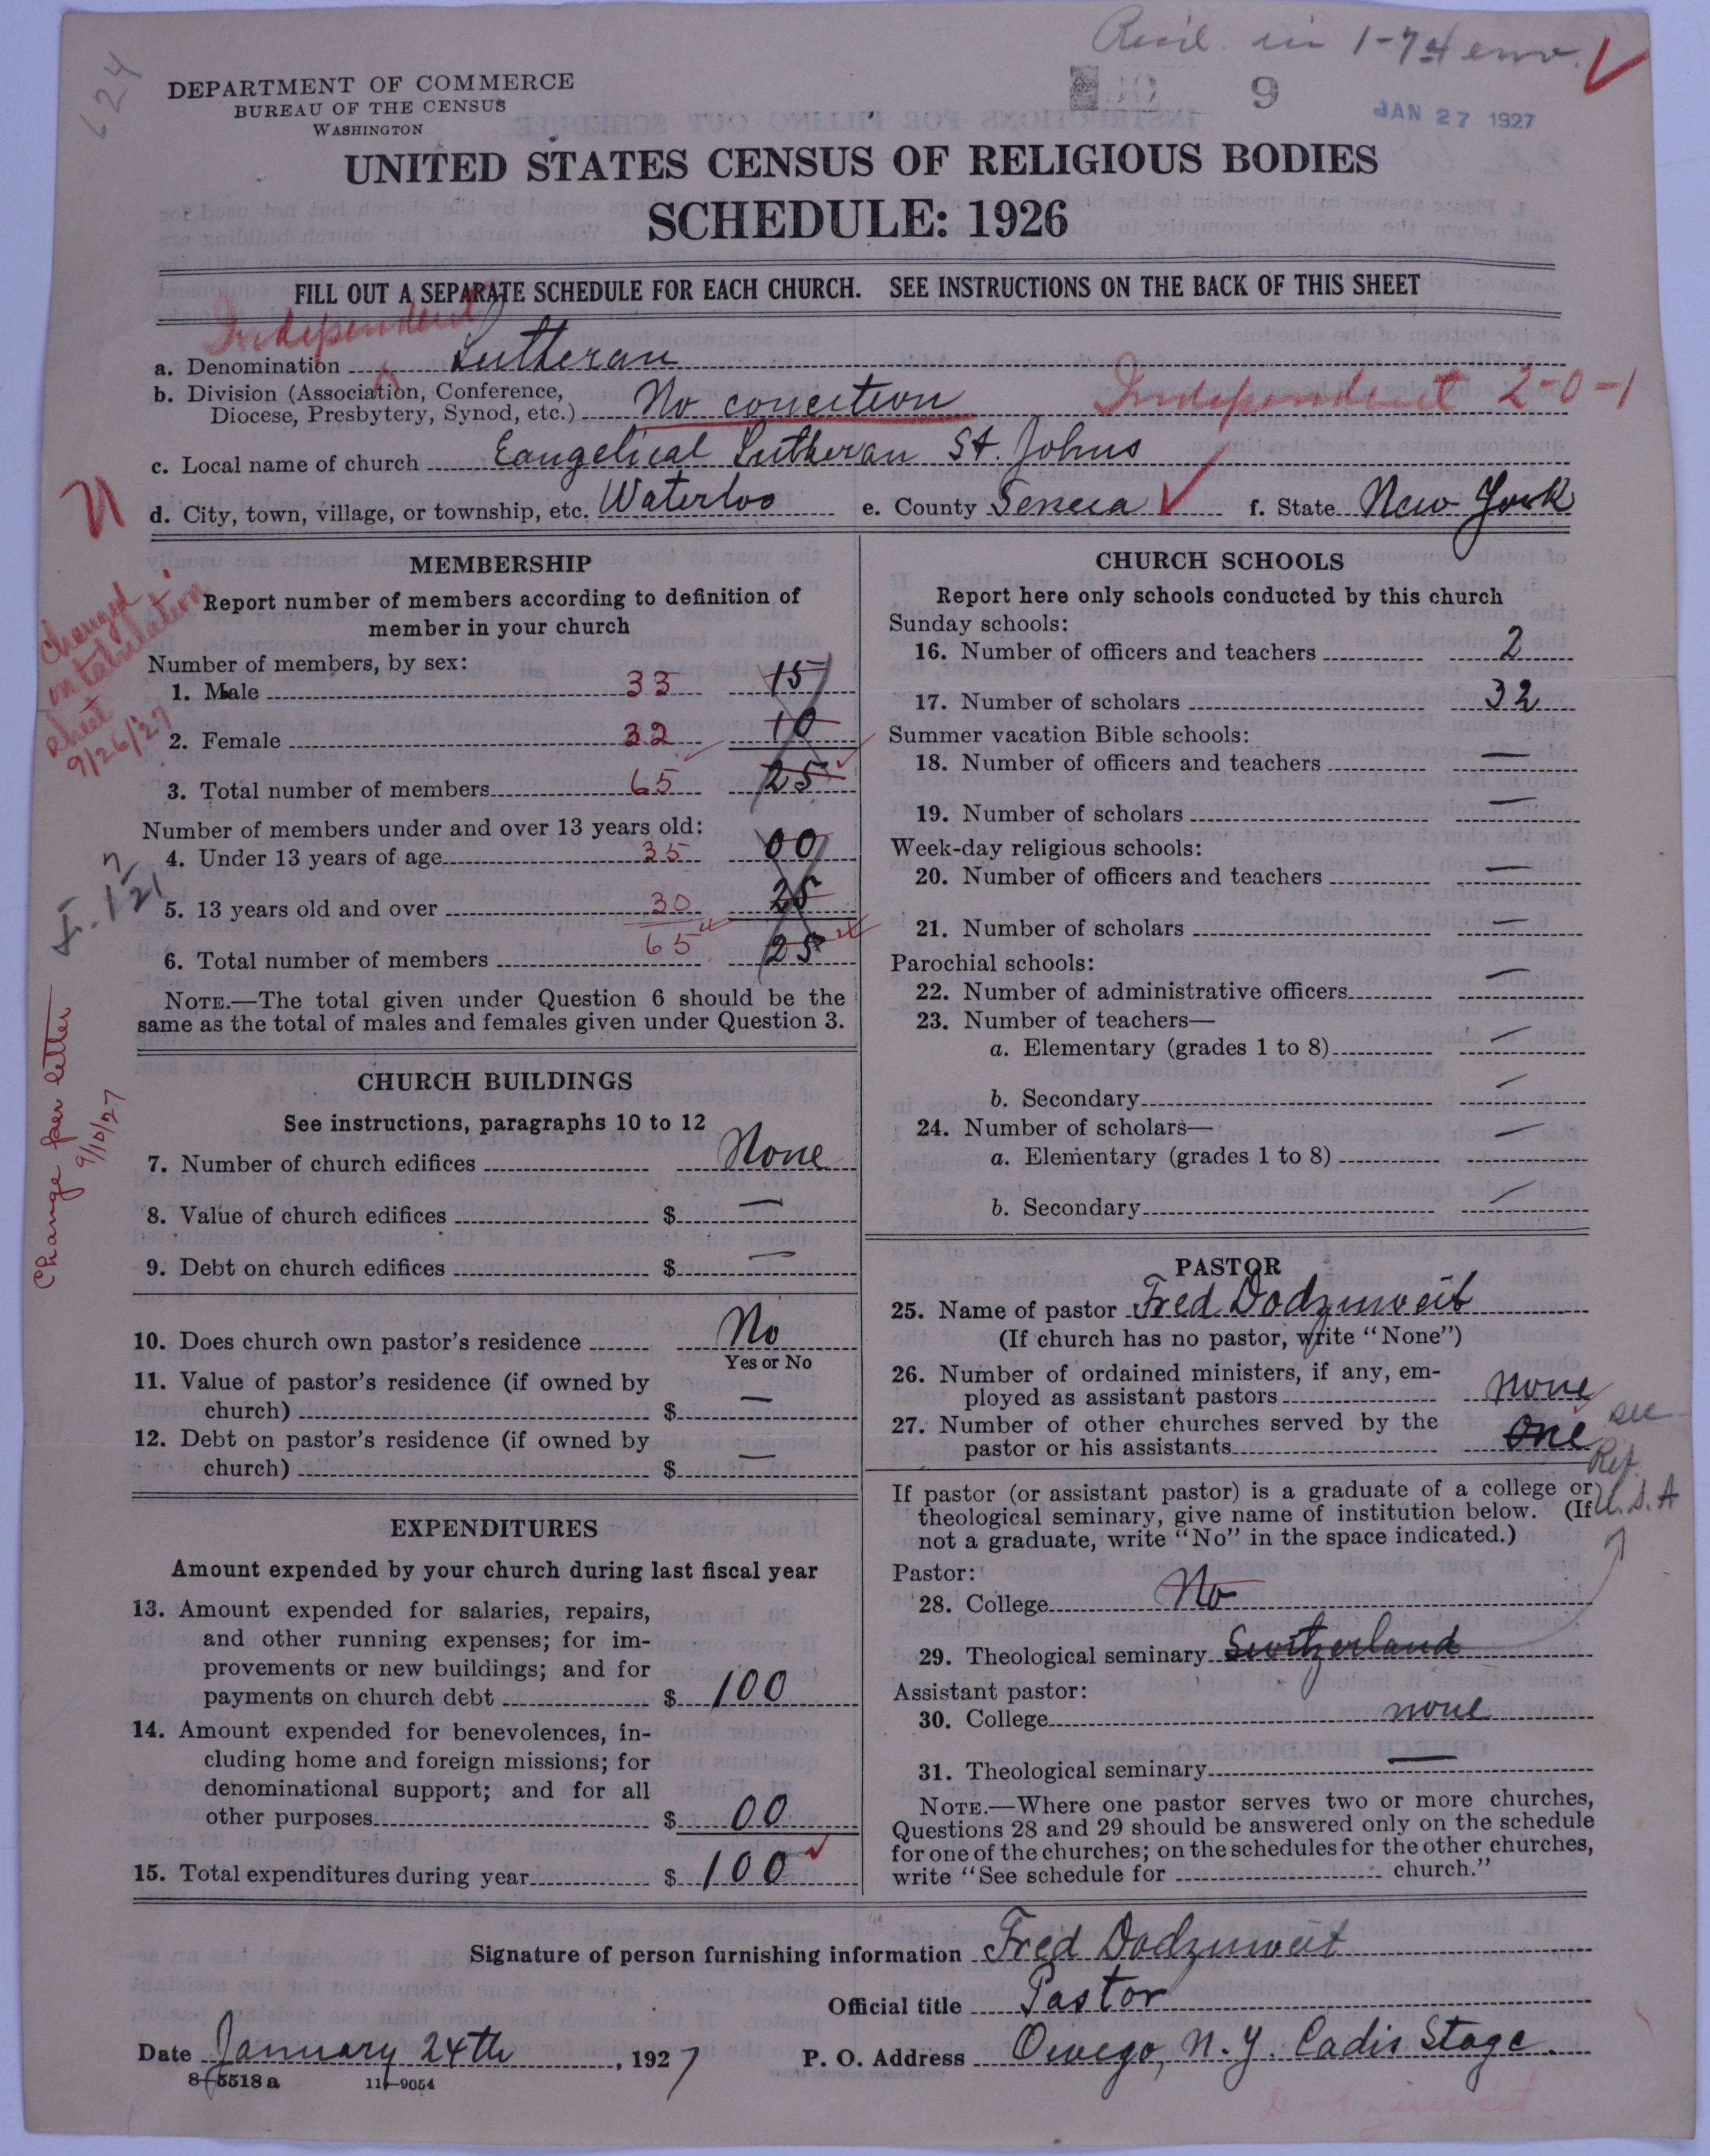 624
Recd. in 1-74 env.
9
JAN 27 1927
DEPARTMENT OF COMMERCE
BUREAU OF THE CENSUS
WASHINGTON
UNITED STATES CENSUS OF RELIGIOUS BODIES
SCHEDULE: 1926
FILL OUT A SEPARATE SCHEDULE FOR EACH CHURCH. SEE INSTRUCTIONS ON THE BACK OF THIS SHEET
Independent
a. Denomination Lutheran
b. Division (Association, Conference,
Diocese, Presbytery, Synod, etc.) No conection Independent 2-0-1
c. Local name of church Eangelical Lutheran St. Johns
d. City, town, village, or township, etc. Waterloo e. County Seneca f. State New York
MEMBERSHIP
Report number of members according to definition of
member in your church
Number of members, by sex:
1. Male 33 15
2. Female 32 10
3. Total number of members 65 25
Number of members under and over 13 years old:
4. Under 13 years of age 35 00
5. 13 years old and over 30 25
6. Total number of members 65 25
NOTE.—The total given under Question 6 should be the
same as the total of males and females given under Question 3.
Changed
on tabulation
sheet
9/26/27
Change per letter
9/10/27
CHURCH BUILDINGS
See instructions, paragraphs 10 to 12
7. Number of church edifices None
8. Value of church edifices $ —
9. Debt on church edifices $ —
10. Does church own pastor's residence No
Yes or No
11. Value of pastor's residence (if owned by
church) $ —
12. Debt on pastor's residence (if owned by
church) $ —
EXPENDITURES
Amount expended by your church during last fiscal year
13. Amount expended for salaries, repairs,
and other running expenses; for im-
provements or new buildings; and for
payments on church debt $ 100
14. Amount expended for benevolences, in-
cluding home and foreign missions; for
denominational support; and for all
other purposes $ 00
15. Total expenditures during year $ 100
CHURCH SCHOOLS
Report here only schools conducted by this church
Sunday schools:
16. Number of officers and teachers 2
17. Number of scholars 32
Summer vacation Bible schools:
18. Number of officers and teachers —
19. Number of scholars —
Week-day religious schools:
20. Number of officers and teachers —
21. Number of scholars —
Parochial schools:
22. Number of administrative officers —
23. Number of teachers—
a. Elementary (grades 1 to 8) —
b. Secondary —
24. Number of scholars—
a. Elementary (grades 1 to 8) —
b. Secondary —
PASTOR
25. Name of pastor Fred Dodzuweit
(If church has no pastor, write "None")
26. Number of ordained ministers, if any, em-
ployed as assistant pastors none
27. Number of other churches served by the
pastor or his assistants One
see
Ref.
U.S.A
If pastor (or assistant pastor) is a graduate of a college or
theological seminary, give name of institution below. (If
not a graduate, write "No" in the space indicated.)
Pastor:
28. College No
29. Theological seminary Switzerland
Assistant pastor:
30. College none
31. Theological seminary —
NOTE.—Where one pastor serves two or more churches,
Questions 28 and 29 should be answered only on the schedule
for one of the churches; on the schedules for the other churches,
write "See schedule for church."
Signature of person furnishing information Fred Dodzuweit
Official title Pastor
Date January 24th, 1927 P. O. Address Owego, N.Y. Cadis Stage.
8-5518 a 11-9054
Dodzuweit